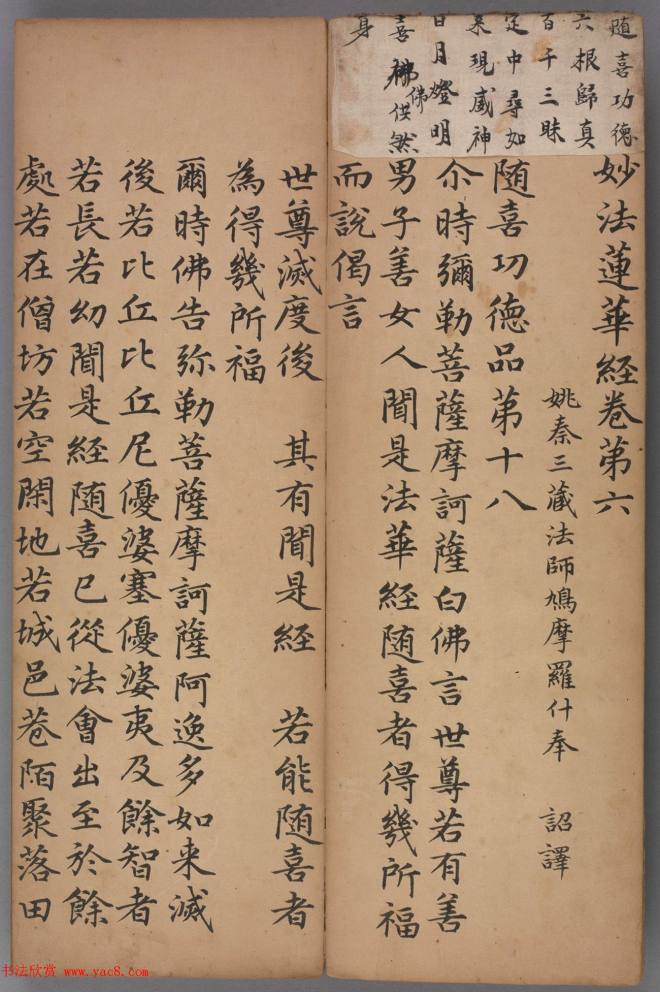 随喜功德
六根歸真
百千三昧
定中尋如
来現威神
日月燈明
佛
喜 佛供然
身
妙法蓮華経卷第六
姚秦三藏法師鳩摩羅什奉 詔譯
随喜功德品第十八
尒時彌勒菩薩摩訶薩白佛言世尊若有善
男子善女人聞是法華経随喜者得幾所福
而說偈言
世尊滅度後 其有聞是経 若能随喜者
為得幾所福
爾時佛告弥勒菩薩摩訶薩阿逸多如来滅
後若比丘比丘尼優婆塞優婆夷及餘智者
若長若幼聞是経随喜已從法會出至於餘
處若在僧坊若空閑地若城邑巷陌聚落田
书法欣赏 www.yac8.com